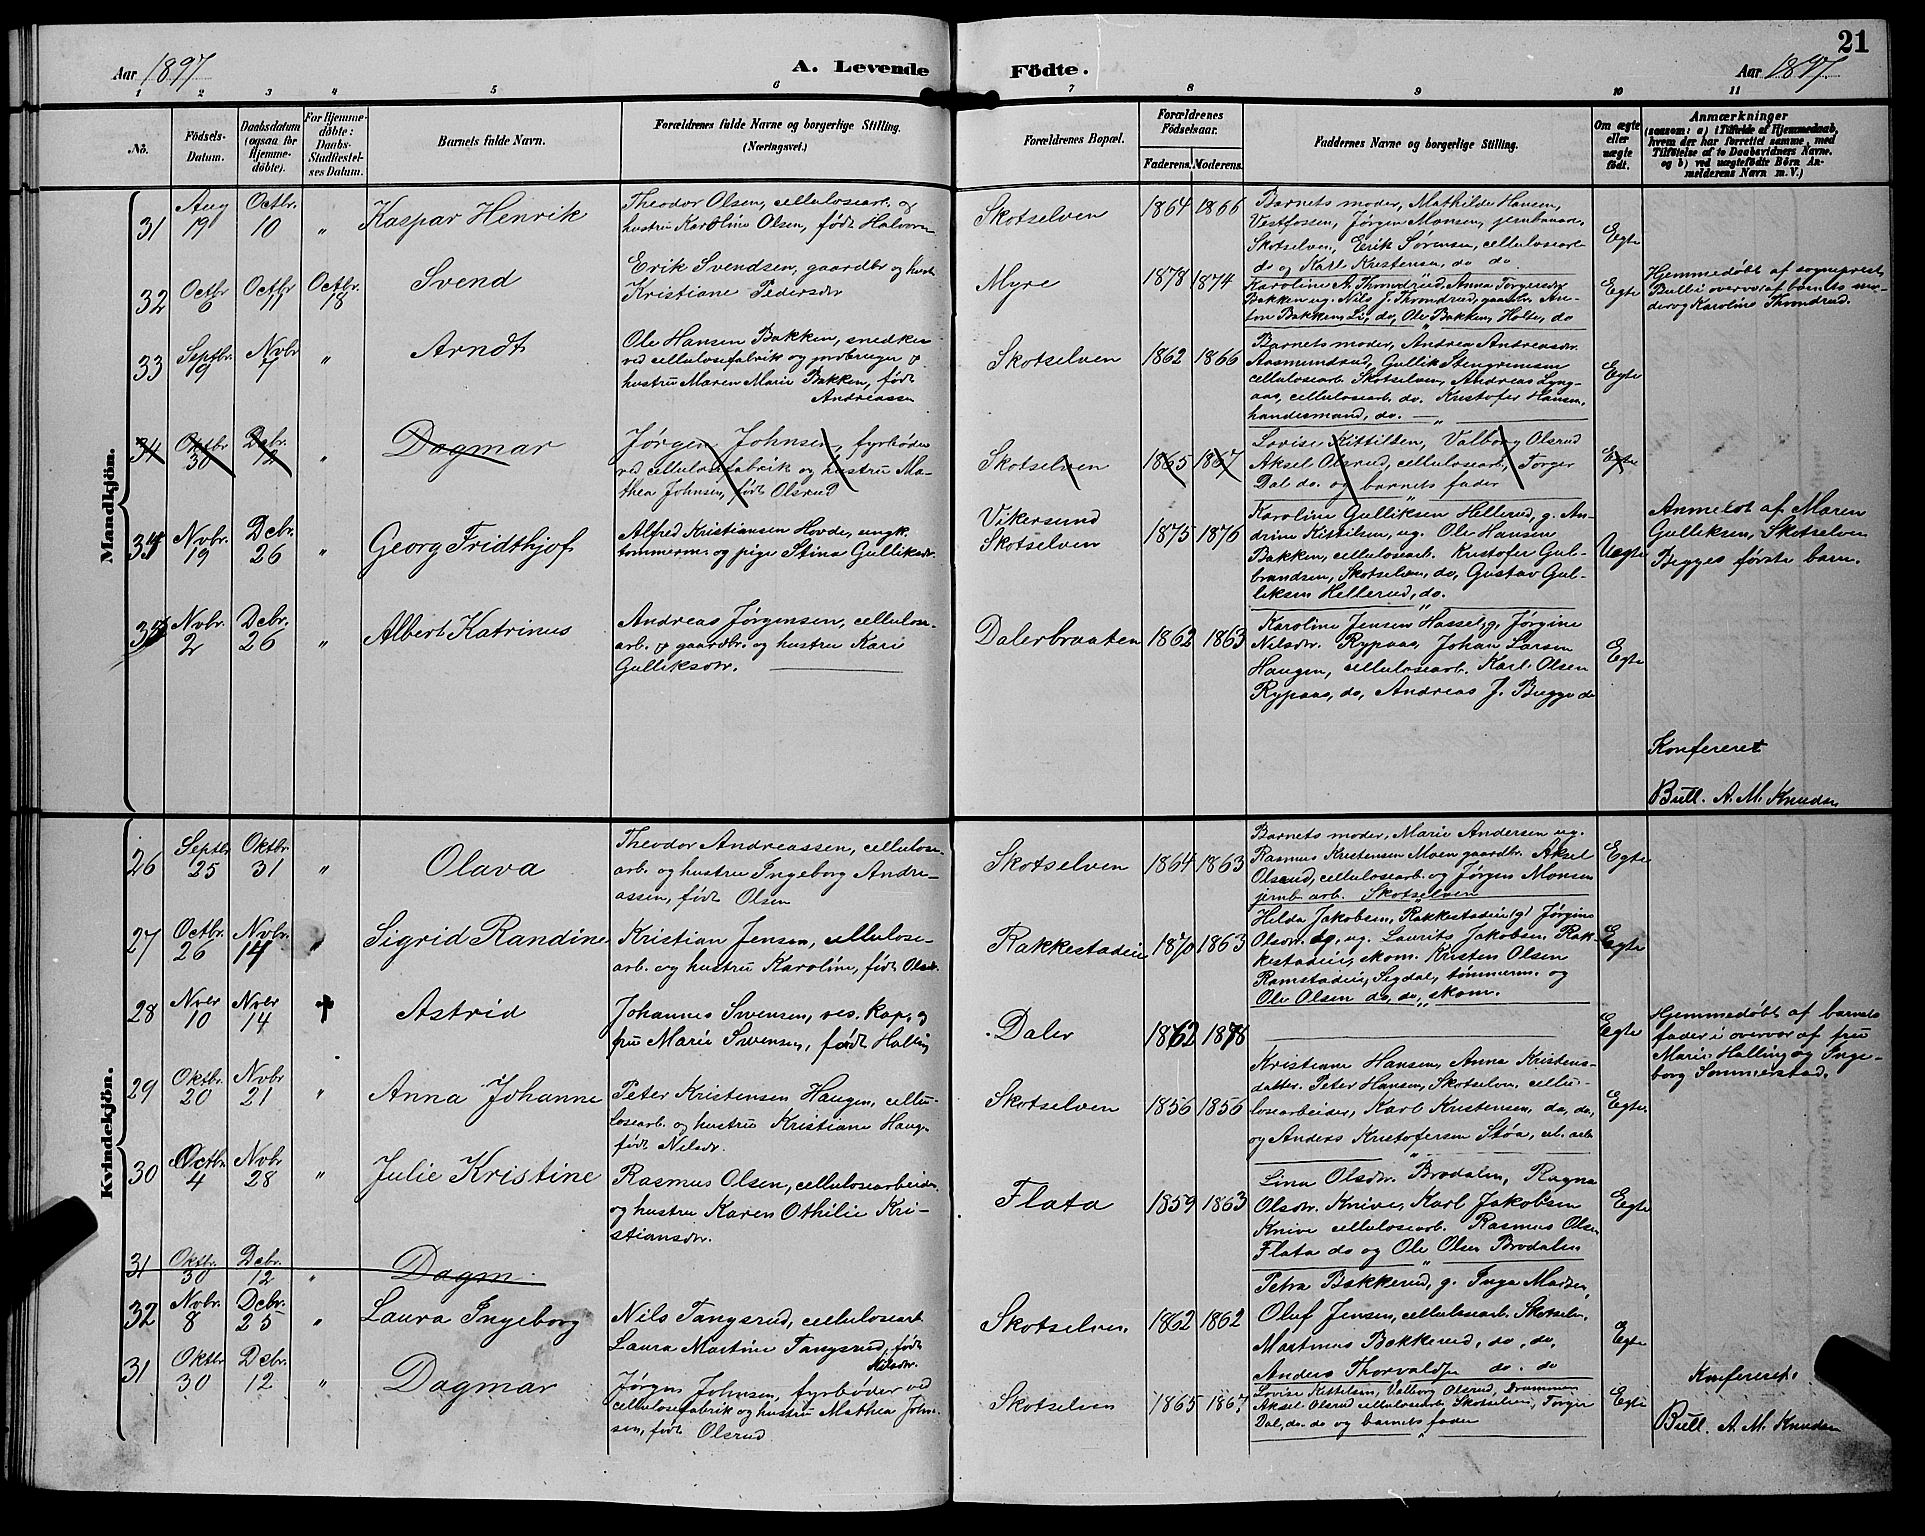 21
Aar 1897
A. Levende Födte.
Aar 1897
1 2 3 4 5 6 7 8 9 10 11
No.
Födsels-
Datum.
Daabsdatum
(ogsaa for
Hjemme-
døbte).
For Hjemme-
døbte:
Daabs-
Stadfæstel-
ses Datum.
Barnets fulde Navn.
Forældrenes fulde Navne og borgerlige Stilling.
(Næringsvei.)
Forældrenes Bopæl.
Forældrenes
Födselsaar.
Faderens. Moderens.
Faddernes Navne og borgerlige Stilling.
Om ægte
eller
uægte
født.
Anmærkninger
(saasom: a) i Tilfælde af Hjemmedaab,
hvem der har forrettet samme, med
Tilföielse af to Daabsvidners Navne.
og b) ved uægtefödte Börn An-
melderens Navn m. V.)
Mandkjön.
31 Aug 19 Octbr. 10 " Kaspar Henrik
Theodor Olsen, cellulosearb. og
hustru Karoline Olsen, født Halvorsen
Skotselven 1864 1866
Barnets moder, Mathilde Hansen,
Vestfossen, Jørgen Monsen, jernbanearb.
Skotselven, Erik Sørensen, cellulosearb.
do og Karl Kristensen, do do.
Egte
32 Octbr 6 Octbr 11 Octbr. 18 Svend
Erik Svendsen, gaardbr og hustr.
Kristiane Pedersdr
Myre 1878 1874
Karoline A. Throndrud, Anna Torgersdr
Bakken ug. Nils J. Throndrud, gaardbr. An-
ton Bakken, Li, do, Ole Bakken, Holte, do
Egte
Hjemmedøbt af sogneprest
Bull i overvær af barnets mo-
der og Karoline Throndrud.
33 Septbr. 19 Novbr 7 " Arndt
Ole Hansen Bakken, snedker
ved cellulosefabrik og jordbruger &
hustru Maren Marie Bakken, født
Andreassen
Skotselven 1862 1866
Barnets moder, Andrea Andreasdr.
Aasmundrud, Gullik Stengrimsen
cellulosearb. Skotselven, Andreas Lyng-
aas, cellulosearb. do. Kristofer Hansen,
handlesmand, do.
Egte
34 Oktbr 30 Dcbr. 12 " Dagmar
Jørgen Johnsen, fyrbøder
ved cellulosefabrik og hustru Ma-
thea Johnsen, født Olsrud
Skotselven 1865 1867
Lovise Kittilsen, Valborg Olsrud
Aksel Olsrud, cellulosearb, Torger
Dal do. og barnets fader
Egte
Novbr. 19 Dcbr. 26 " Georg Fridthjof
Alfred Kristiansen Hovde, ungk.
tømmerm. og pige Stina Gulliksdr.
Vikersund
Skotselven 1875 1876
Karoline Gulliksen Hellerud, g. An-
drine Kittilsen, ug. Ole Hansen
Bakken, cellulosearb. Kristofer Gul-
brandsen, Skotselven, do, Gustav Gul-
liksen Hellerud, do.
Uegte
Anmeldt af Maren
Gulliksen, Skotselven
Begges første barn.
Nvbr. 2 Dcbr. 26 " Albert Katrinus
Andreas Jørgensen, cellulose-
arb. & gaardbr. og hustru Kari
Gulliksdr.
Dalerbraaten 1862 1863
Karoline Jensen Hassel, g, Jørgine
Nilsdr. Rypaas, Johan Larsen
Haugen, cellulosearb. Karl Olsen
Rypaas, do, Andreas J. Bugge do
Egte
Konfereret
Bull. A. M. Knudsen
Kvindekjön.
26 Septbr 25 Oktbr. 31 " Olava
Theodor Andreassen, cellulose-
arb. og hustru Ingeborg Andre-
assen, født Olsen
Skotselven 1864 1863
Barnets moder, Marie Andersen ug.
Rasmus Kristensen Moen gaardbr. Aksel
Olsrud, cellulosearb. og Jørgen Monsen
jernb. arb. Skotselven
Egte
27 Octbr. 26 Nvbr. 14 " Sigrid Randine
Kristian Jensen, cellulose-
arb. og hustru Karoline, født Olsdr.
Rakkestadeie 1870 1863
Hilda Jakobsen, Rakkestadeie (g) Jørgine
Olsdr. do, ug. Laurits Jakobsen, Rak-
kestadeie, skom. Kristen Olsen
Ramstadeie, Sigdal, tømmerm. og
Ole Olsen do, do, skom.
Egte
28 Nvbr 10 Nvbr 14 † Astrid
Johannes Svensen, res. kap. og
fru Marie Svensen, født Halling
Daler 1862 1878
Egte
Hjemmedøbt af barnets
fader i overvær af fru
Marie Halling og Inge-
borg Sommerstad.
29 Oktbr. 20 Nvbr 21 " Anna Johanne
Peter Kristensen Haugen, cellu-
losearb. og hustru Kristiane Haug.
født Nilsdr.
Skotselven 1856 1856
Kristiane Hansen, Anna Kristens-
datter. Peter Hansen, Skotselven, cellu-
losearbeider, Karl Kristensen, do, do,
og Anders Kristofersen Støa, cel. arb
Egte.
30 Octbr. 4 Nvbr 28 " Julie Kristine
Rasmus Olsen, cellulosearbeider.
og hustru Karen Othilie Kri-
stiansdr.
Flata 1859 1863
Lina Olsdr. Brodalen, Ragna
Olsdr. Knive, Karl Jakobsen
Knive cellulosearb. Rasmus Olsen
Flata do og Ole Olsen Brodalen
Egte
31 Oktbr. 30 Dcbr. 12 " Dagm.
32 Nvbr. 8 Dcbr. 25 " Laura Ingeborg
Nils Tangsrud, cellulosearb
Laura Martine Tangsrud, født
Nilsdr.
Skotselven. 1862 1862
Petra Bakkerud, g. Inga Madsen,
Oluf Jensen, cellulosearb. Skotselv.
Martinus Bakkerud, do, do,
Anders Thorvaldsen do. do
Egte
31 Oktbr 30 Dcbr. 12 " Dagmar
Jørgen Johnsen, fyrbøder ved
cellulosefabrik og hustru Mathea John-
sen, født Olsrud
Skotselven 1865 1867
Lovise Kittilsen, Valborg Olsrud, Drammen
Aksel Olsrud cellulosearb. Skotselven, Torger
Dal, do. do og barnets fader
Egte
Konfereret.
Bull. A. M. Knudsen